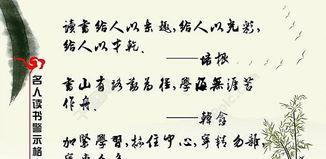 读书给人以乐趣，给人以光彩，
给人以才干。
——培根
书山有路勤为径，學海無涯苦
作舟。
——韓愈
加緊學習，抓住中心，宁精勿雜，
名人读书警示格